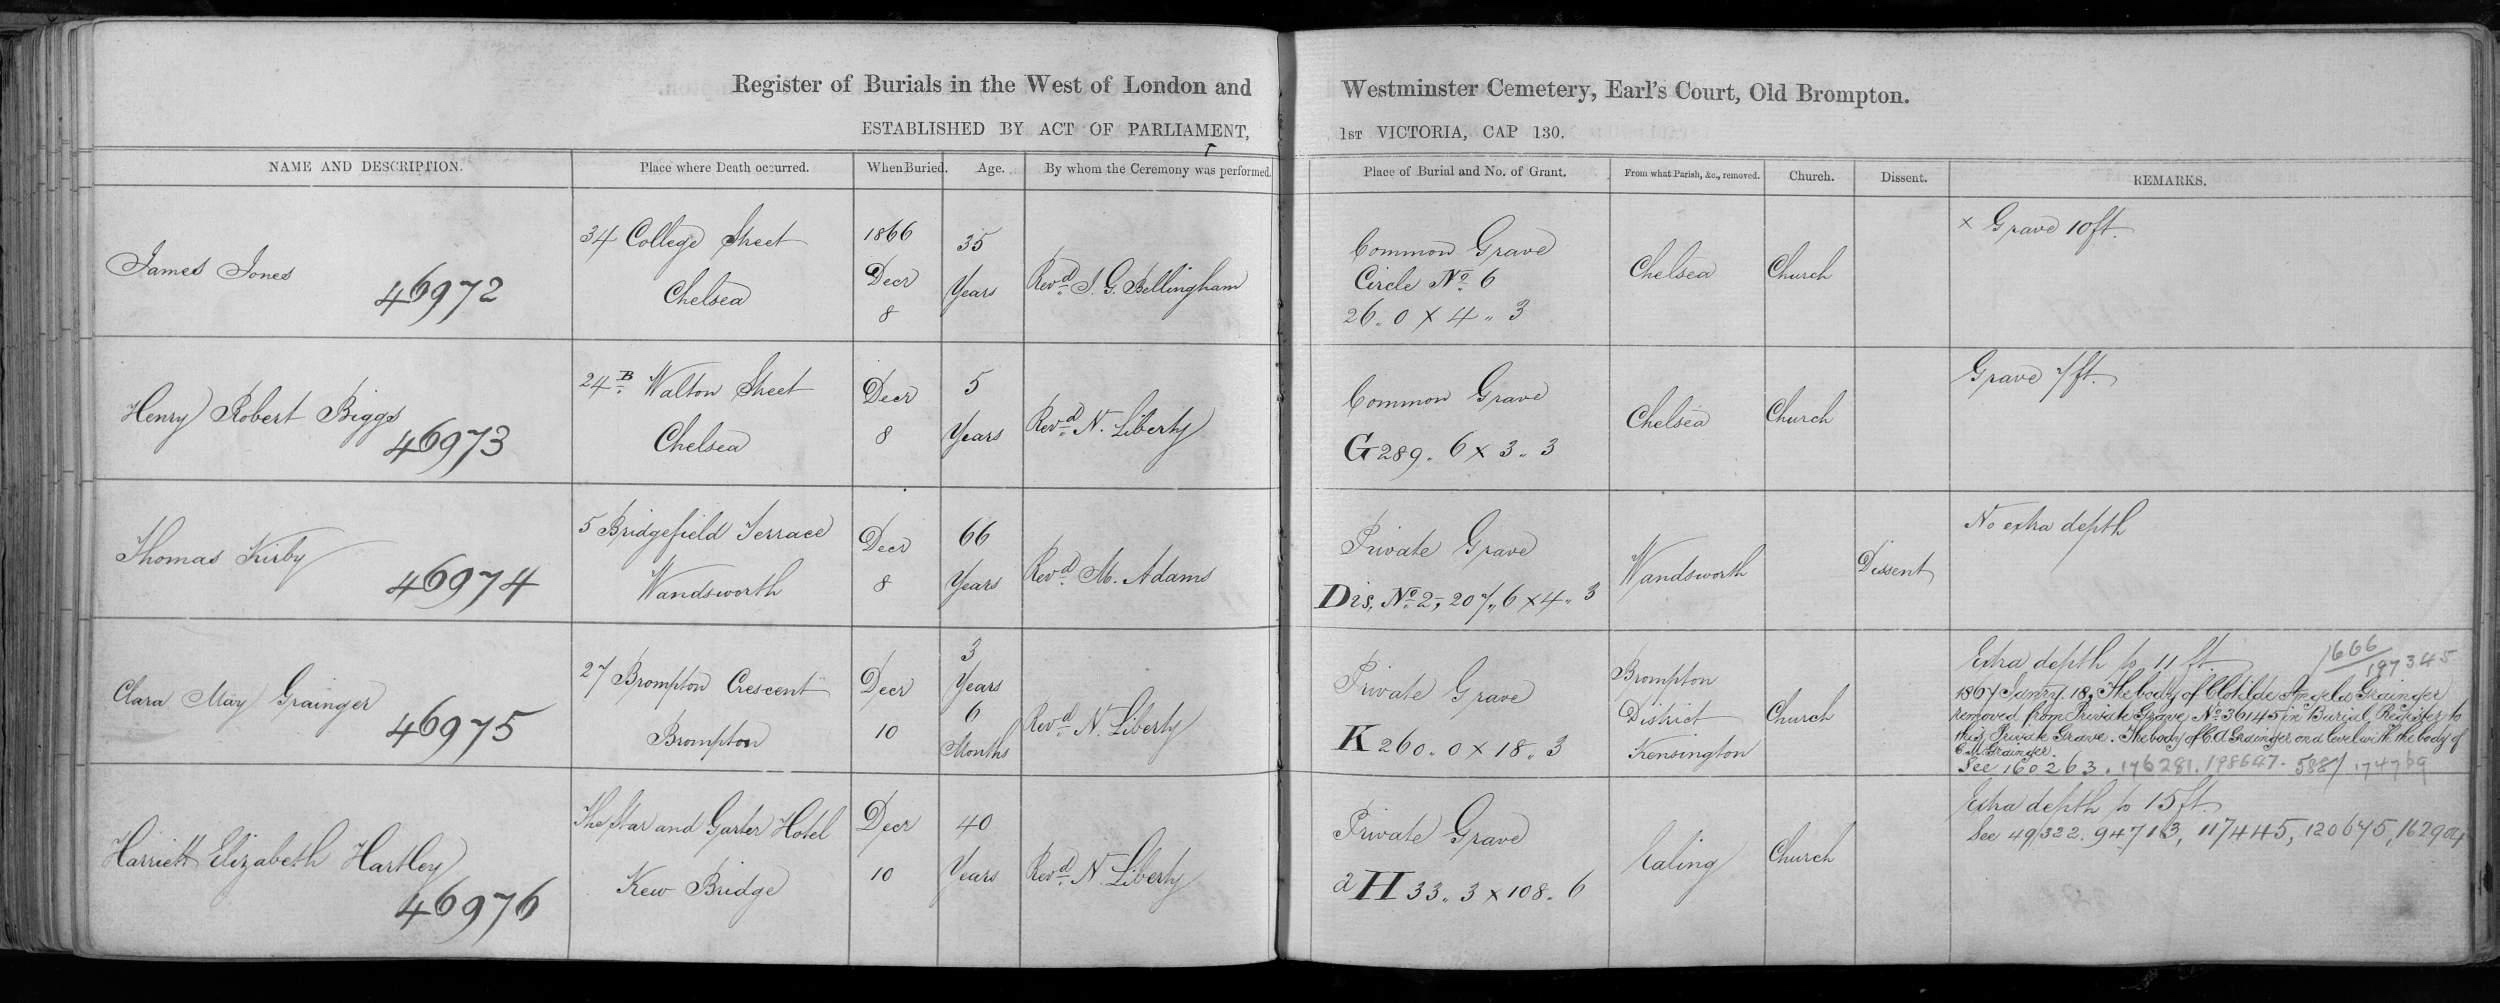 Register of Burials in the West of London and Westminster Cemetery, Earl's Court, Old Brompton.
ESTABLISHED BY ACT OF PARLIAMENT, 1ST VICTORIA, CAP 130.
NAME AND DESCRIPTION. Place where Death occurred. When Buried. Age. By whom the Ceremony was performed. Place of Burial and No. of Grant. From what Parish, &c., removed. Church. Dissent. REMARKS.
James Jones 46972
34 College Street
Chelsea
1866
Decr
8
35
Years
Revd. S. G. Bellingham
Common Grave
Circle No. 6
26 " 0 x 4 " 3
Chelsea
Church
x Grave 10 ft.
Henry Robert Biggs 46973
24 B. Walton Street
Chelsea
Decr
8
5
Years
Revd. N. Liberty
Common Grave
G 289 " 6 x 3 " 3
Chelsea
Church
Grave 7 ft.
Thomas Kirby 46974
5 Bridgefield Terrace
Wandsworth
Decr
8
66
Years
Revd. M. Adams
Private Grave
Dis. No. 2, 207 " 6 x 4 " 3
Wandsworth
Dissent
No extra depth
Clara May Grainger 46975
27 Brompton Crescent
Brompton
Decr
10
3
Years
6
Months
Revd. N. Liberty
Private Grave
K 260 " 0 x 18 " 3
Brompton
District
Kensington
Church
Extra depth to 11 ft. 1666
197345
1867 Janry. 18, The body of Clotilde Angela Grainger
removed from Private Grave, No. 36145 in Burial Register to
this Private Grave. The body of C. A Grainger on a level with the body of
C M Grainger.
See 160263. 176281. 198647. 5887 174769
Harriett Elizabeth Hartley 46976
The Star and Garter Hotel
Kew Bridge
Decr
10
40
Years
Revd. N. Liberty
Private Grave
a H 33 " 3 x 108 " 6
Ealing
Church
Extra depth to 15 ft.
See 49,322. 94713, 117445, 120675,